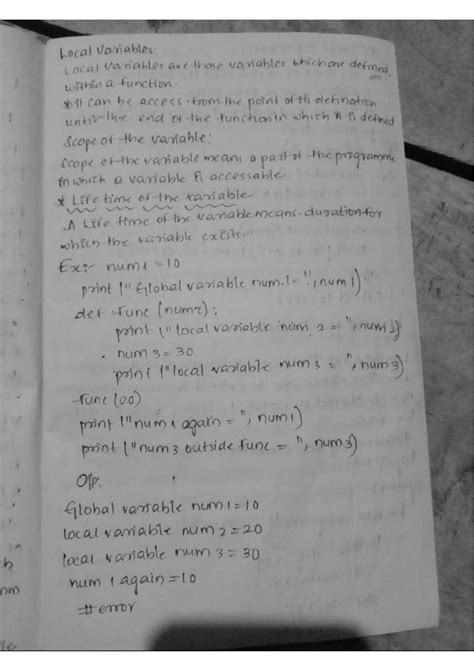 Local Variables:
Local variables are those variables which are defined
within a function.
* It can be access from the point of its defination
until the end of the function in which it is defined
Scope of the variable:
Scope of the variable means a part of the programme
in which a variable is accessable.
* Life time of the variable
. A Life time of the variable means duration for
which the variable exists.
Ex:- num1 = 10
print ("Global variable num1 = ", num1)
def func (num2):
print ("local variable num 2 = ", num2)
. num3 = 30
print ("local variable num3 = ", num3)
func (20)
print ("num1 again = ", num1)
print ("num3 outside func = ", num3)
O/p.
Global variable num1 = 10
local variable num2 = 20
local variable num3 = 30
num 1 again = 10
# error